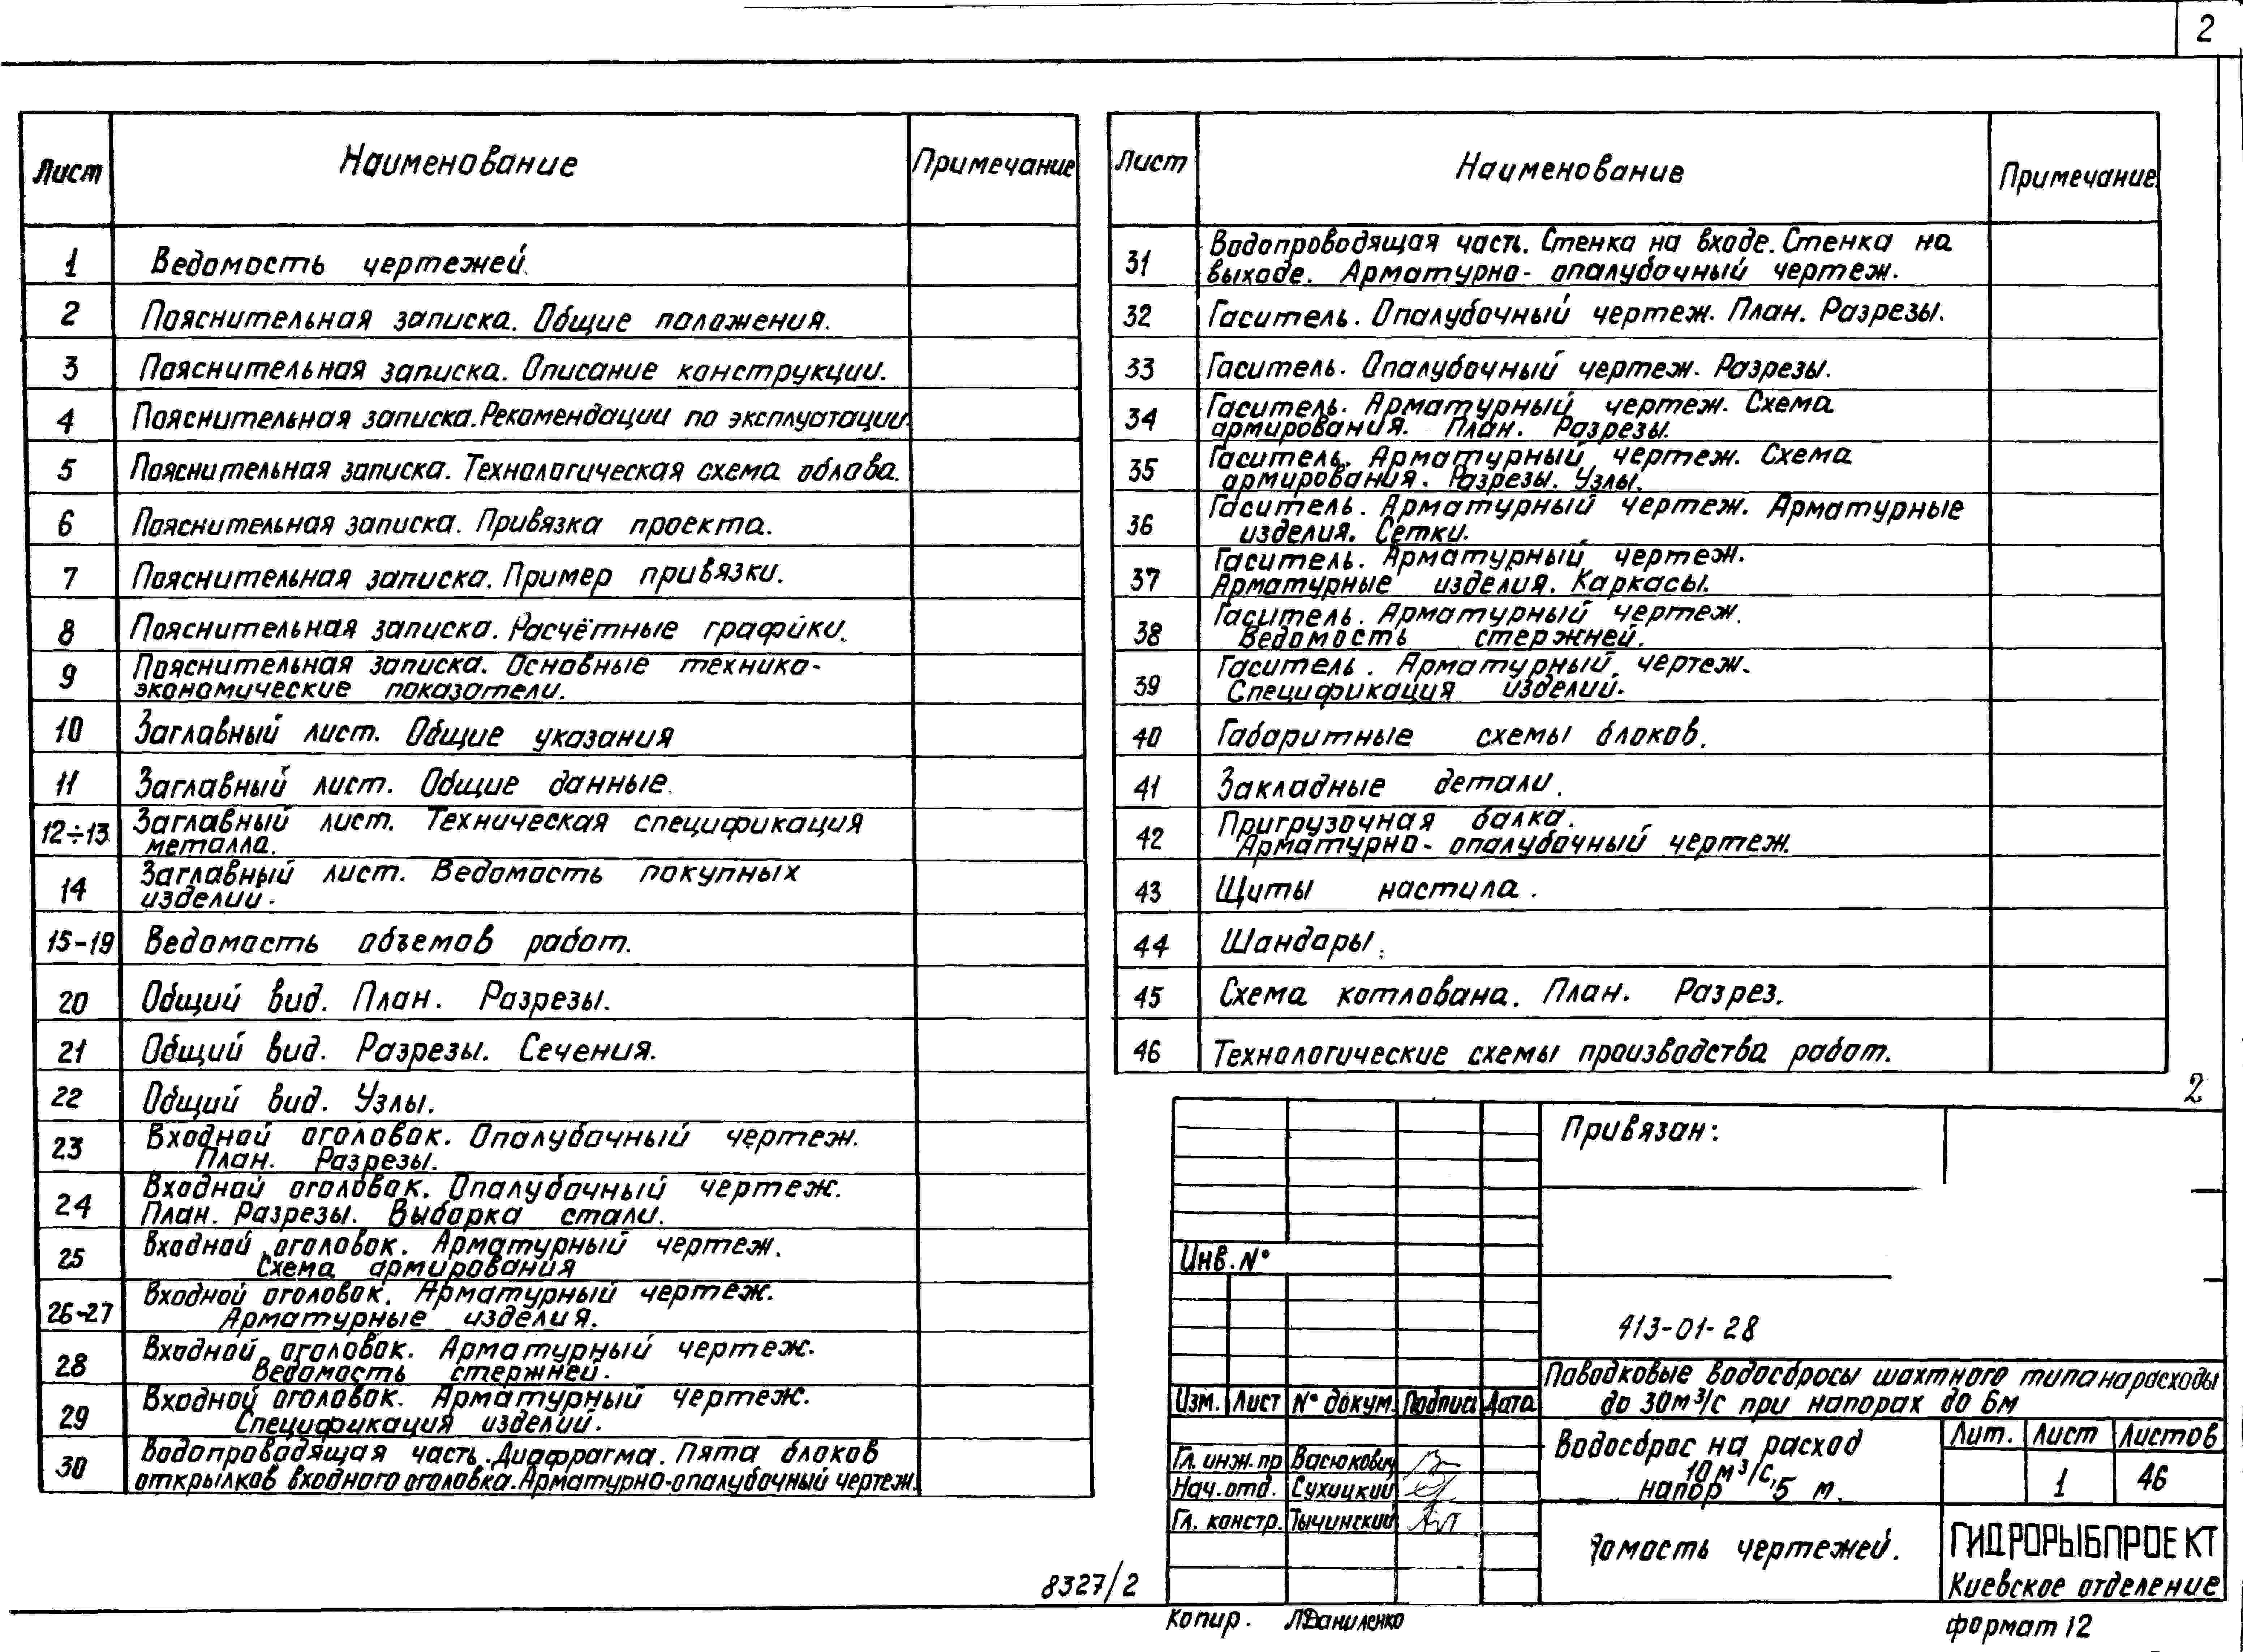 2
Лист Наименование Примечание
1 Ведомость чертежей.
2 Пояснительная записка. Общие положения.
3 Пояснительная записка. Описание конструкции.
4 Пояснительная записка. Рекомендации по эксплуатации.
5 Пояснительная записка. Технологическая схема облова.
6 Пояснительная записка. Привязка проекта.
7 Пояснительная записка. Пример привязки.
8 Пояснительная записка. Расчётные графики.
9 Пояснительная записка. Основные технико-
экономические показатели.
10 Заглавный лист. Общие указания
11 Заглавный лист. Общие данные.
12÷13 Заглавный лист. Техническая спецификация
металла.
14 Заглавный лист. Ведомость покупных
изделий.
15-19 Ведомость объемов работ.
20 Общий вид. План. Разрезы.
21 Общий вид. Разрезы. Сечения.
22 Общий вид. Узлы.
23 Входной оголовок. Опалубочный чертеж.
План. Разрезы.
24 Входной оголовок. Опалубочный чертеж.
План. Разрезы. Выборка стали.
25 Входной оголовок. Арматурный чертеж.
Схема армирования
26-27 Входной оголовок. Арматурный чертеж.
Арматурные изделия.
28 Входной оголовок. Арматурный чертеж.
Ведомость стержней.
29 Входной оголовок. Арматурный чертеж.
Спецификация изделий.
30 Водопроводящая часть. Диафрагма. Пята блоков
открылков входного оголовка. Арматурно-опалубочный чертеж.
Лист Наименование Примечание
31 Водопроводящая часть. Стенка на входе. Стенка на
выходе. Арматурно-опалубочный чертеж.
32 Гаситель. Опалубочный чертеж. План. Разрезы.
33 Гаситель. Опалубочный чертеж. Разрезы.
34 Гаситель. Арматурный чертеж. Схема
армирования. План. Разрезы.
35 Гаситель. Арматурный чертеж. Схема
армирования. Разрезы. Узлы.
36 Гаситель. Арматурный чертеж. Арматурные
изделия. Сетки.
37 Гаситель. Арматурный чертеж.
Арматурные изделия. Каркасы.
38 Гаситель. Арматурный чертеж.
Ведомость стержней.
39 Гаситель. Арматурный чертеж.
Спецификация изделий.
40 Габаритные схемы блоков.
41 Закладные детали.
42 Пригрузочная балка.
Арматурно-опалубочный чертеж.
43 Щиты настила.
44 Шандоры.
45 Схема котлована. План. Разрез.
46 Технологические схемы производства работ.
2
Привязан:
Инв. №
413-01-28
Изм. Лист № докум. Подпись Дата
Паводковые водосбросы шахтного типа на расходы
до 30 м³/с при напорах до 6м
Гл. инж. пр Васюкович
Нач. отд. Сухицкий
Гл. констр. Тычинский
Водосброс на расход
10 м³/с,
напор 5 м.
Лит. Лист Листов
1 46
домость чертежей.
ГИДРОРЫБПРОЕКТ
Киевское отделение
8327/2
Копир. Л.Даниленко
формат 12